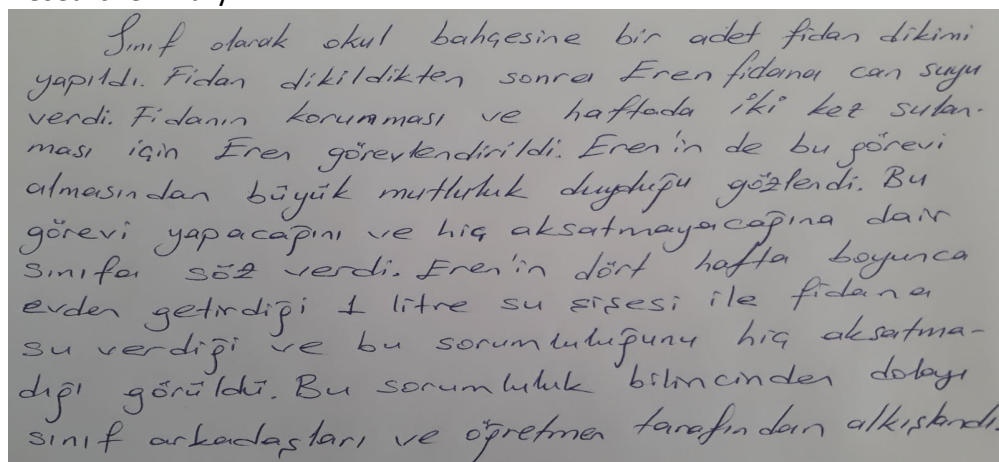 Sınıf olarak okul bahçesine bir adet fidan dikimi
yapıldı. Fidan dikildikten sonra Eren fidana can suyu
verdi. Fidanın korunması ve haftada iki kez sulan-
ması için Eren görevlendirildi. Eren'in de bu görevi
almasından büyük mutluluk duyduğu gözlendi. Bu
görevi yapacağını ve hiç aksatmayacağına dair
sınıfa söz verdi. Eren'in dört hafta boyunca
evden getirdiği 1 litre su şişesi ile fidana
su verdiği ve bu sorumluluğunu hiç aksatma-
dığı görüldü. Bu sorumluluk bilincinden dolayı
sınıf arkadaşları ve öğretmen tarafından alkışlandı.